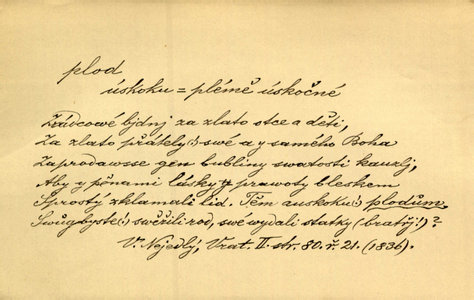 plod
úskoku = plémě úskočné
Zrádcowé bjdnj za zlato otce a děti,
Za zlato přátely(:) swé a y samého Boha
Zaprodawsse gen bubliny swatosti kauzlj,
Aby y pěnami lásky y prawoty bleskem
Sprostý zklamali lid. Těm auskoku(:) plodům
Swůgbyste(:) swěřili rod, swé wydali statky (bratřj!)?
V. Nejedlý, Vrat. II. str. 80. ř. 21. (1836).